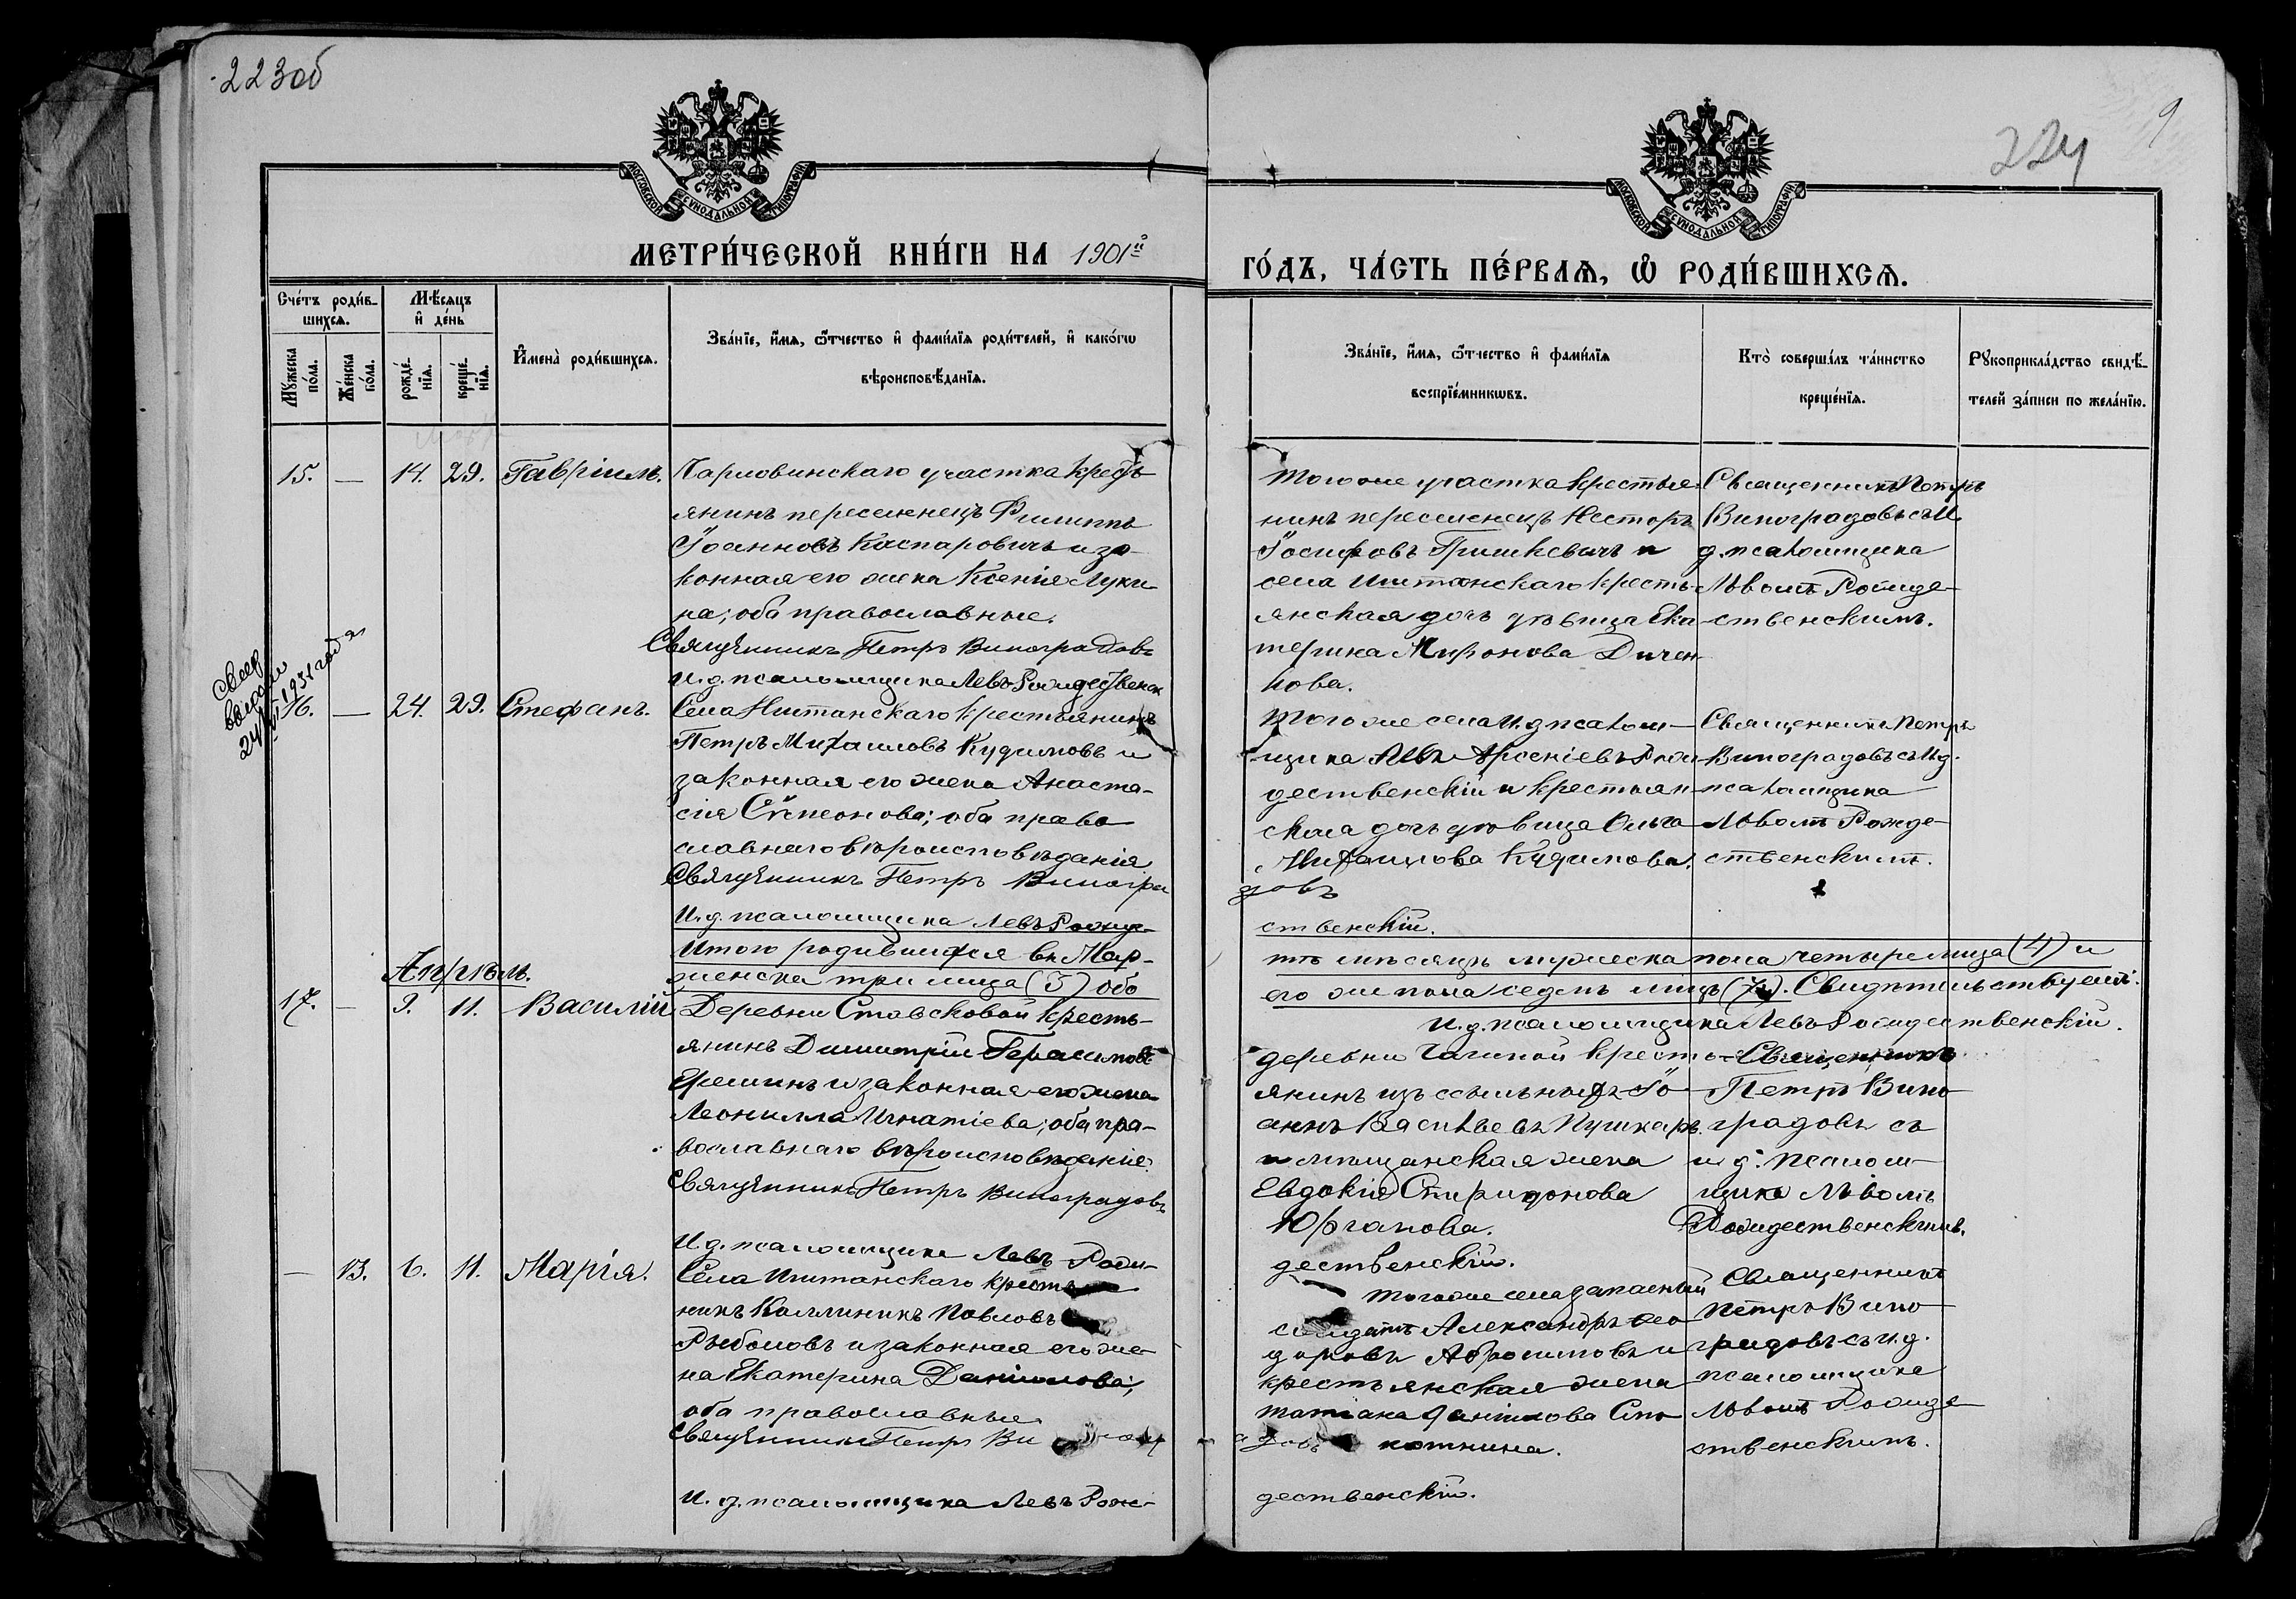 223об
224
9
МОСКОВСКОЙ СѴНОДАЛЬНОЙ ТИПОГРАФІИ
МОСКОВСКОЙ СѴНОДАЛЬНОЙ ТИПОГРАФІИ
МЕТРИ́ЧЕСКОЙ КНИ́ГИ НА 1901й
ГО́ДЪ, ЧА́СТЬ ПЕ́РВАѦ, Ѡ҆ РОДИ́ВШИХСѦ.
Сче́тъ роди́в-
шихсѧ.
Мꙋ́жеска по́ла.
Же́нска по́ла.
Мѣ́сѧцъ
и҆ де́нь
рожде́-
нїѧ.
креще́-
нїѧ.
И҆мена̀ роди́вшихсѧ.
Зва́нїе, и҆́мѧ, ѻ҆́тчество и҆ фами́лїѧ роди́телей, и҆ како́гѡ
вѣроисповѣ́данїѧ.
Зва́нїе, и҆́мѧ, ѻ҆́тчество и҆ фами́лїѧ
воспрїе́мникѡвъ.
Кто̀ соверша́лъ та́инство
креще́нїѧ.
Рꙋкоприкла́дство свидѣ́-
телей за́писи по жела́нїю.
15. — 14. 29. Гавріилъ.
участка кресть
янинъ переселенецъ Филиппъ
Іоанновъ Каспаровичъ и за-
конная его жена Ксенія Луки-
на; оба православные.
Священникъ Петръ Виноградовъ
И. д. псаломщика Левъ Рождественск
Того же участка крестья-
нинъ переселенецъ Несторъ
Іосифовъ Гришкевичъ и
села Иштанскаго кресть-
янская дочь дѣвица Ека-
терина Миронова
нова.
Священникъ Петръ
Виноградовъ съ И.
д. псаломщика
Львомъ Рожде-
ственскимъ.
24/VI 1934 года
16. — 24. 29. Стефанъ.
Села Иштанскаго крестьянинъ
Петръ Михаиловъ Кудиновъ и
законная его жена Анаста-
сія Сѵмеонова; оба право
славнаго вѣроисповѣданія.
Священникъ Петръ Виногра
довъ
И. д. псаломщика Левъ Рожде-
ственскій.
Того же села И. д. псалом-
щика Левъ Арсеніевъ Рож-
дественскій и крестьян-
ская дочь дѣвица Ольга
Михаилова Кудинова.
Священникъ Петръ
Виноградовъ съ И. д.
псаломщика
Львомъ Рожде-
ственскимъ.
Итого родившихся въ Мар-
тѣ мѣсяцѣ мужеска пола четыре лица (4) и
женска три лица (3) обо
его же пола семь лицъ (7). Свидѣтельствуемъ.
И. д. псаломщика Левъ Рождественскій.
Апрѣль.
17. — 9. 11. Василій
Деревни Ставсковой кресть-
янинъ Димитрій Герасимовъ
Ереминъ и законная его жена
Леонилла Игнатіева; оба пра-
вославнаго вѣроисповѣданія.
Священникъ Петръ Виноградовъ
И. д. псаломщика Левъ Рож-
дественскій.
деревни кресть-
янинъ изъ ссыльныхъ Іо-
аннъ Васильевъ Пушкарь.
и мѣщанская жена
Евдокія Спиридонова
Юрганова.
Священникъ
Петръ Вино
градовъ съ
и. д. псалом-
щика Львомъ
Рождественскимъ.
— 13. 6. 11. Марія.
Села Иштанскаго кресть
нинъ Каллиникъ Павловъ
Рыболовъ и законная его же-
на Екатерина Даніилова;
оба православные.
Священникъ Петръ Ви
адовъ
И. д. псаломщика Левъ Рож-
дественскій.
Того же села запасный
солдатъ Александръ Ѳео
доровъ Абросимовъ и
крестьянская жена
Татіана Даніилова Сно
коткина.
Священникъ
Петръ Вино
градовъ съ и. д.
псаломщика
Львомъ Рожде
ственскимъ.